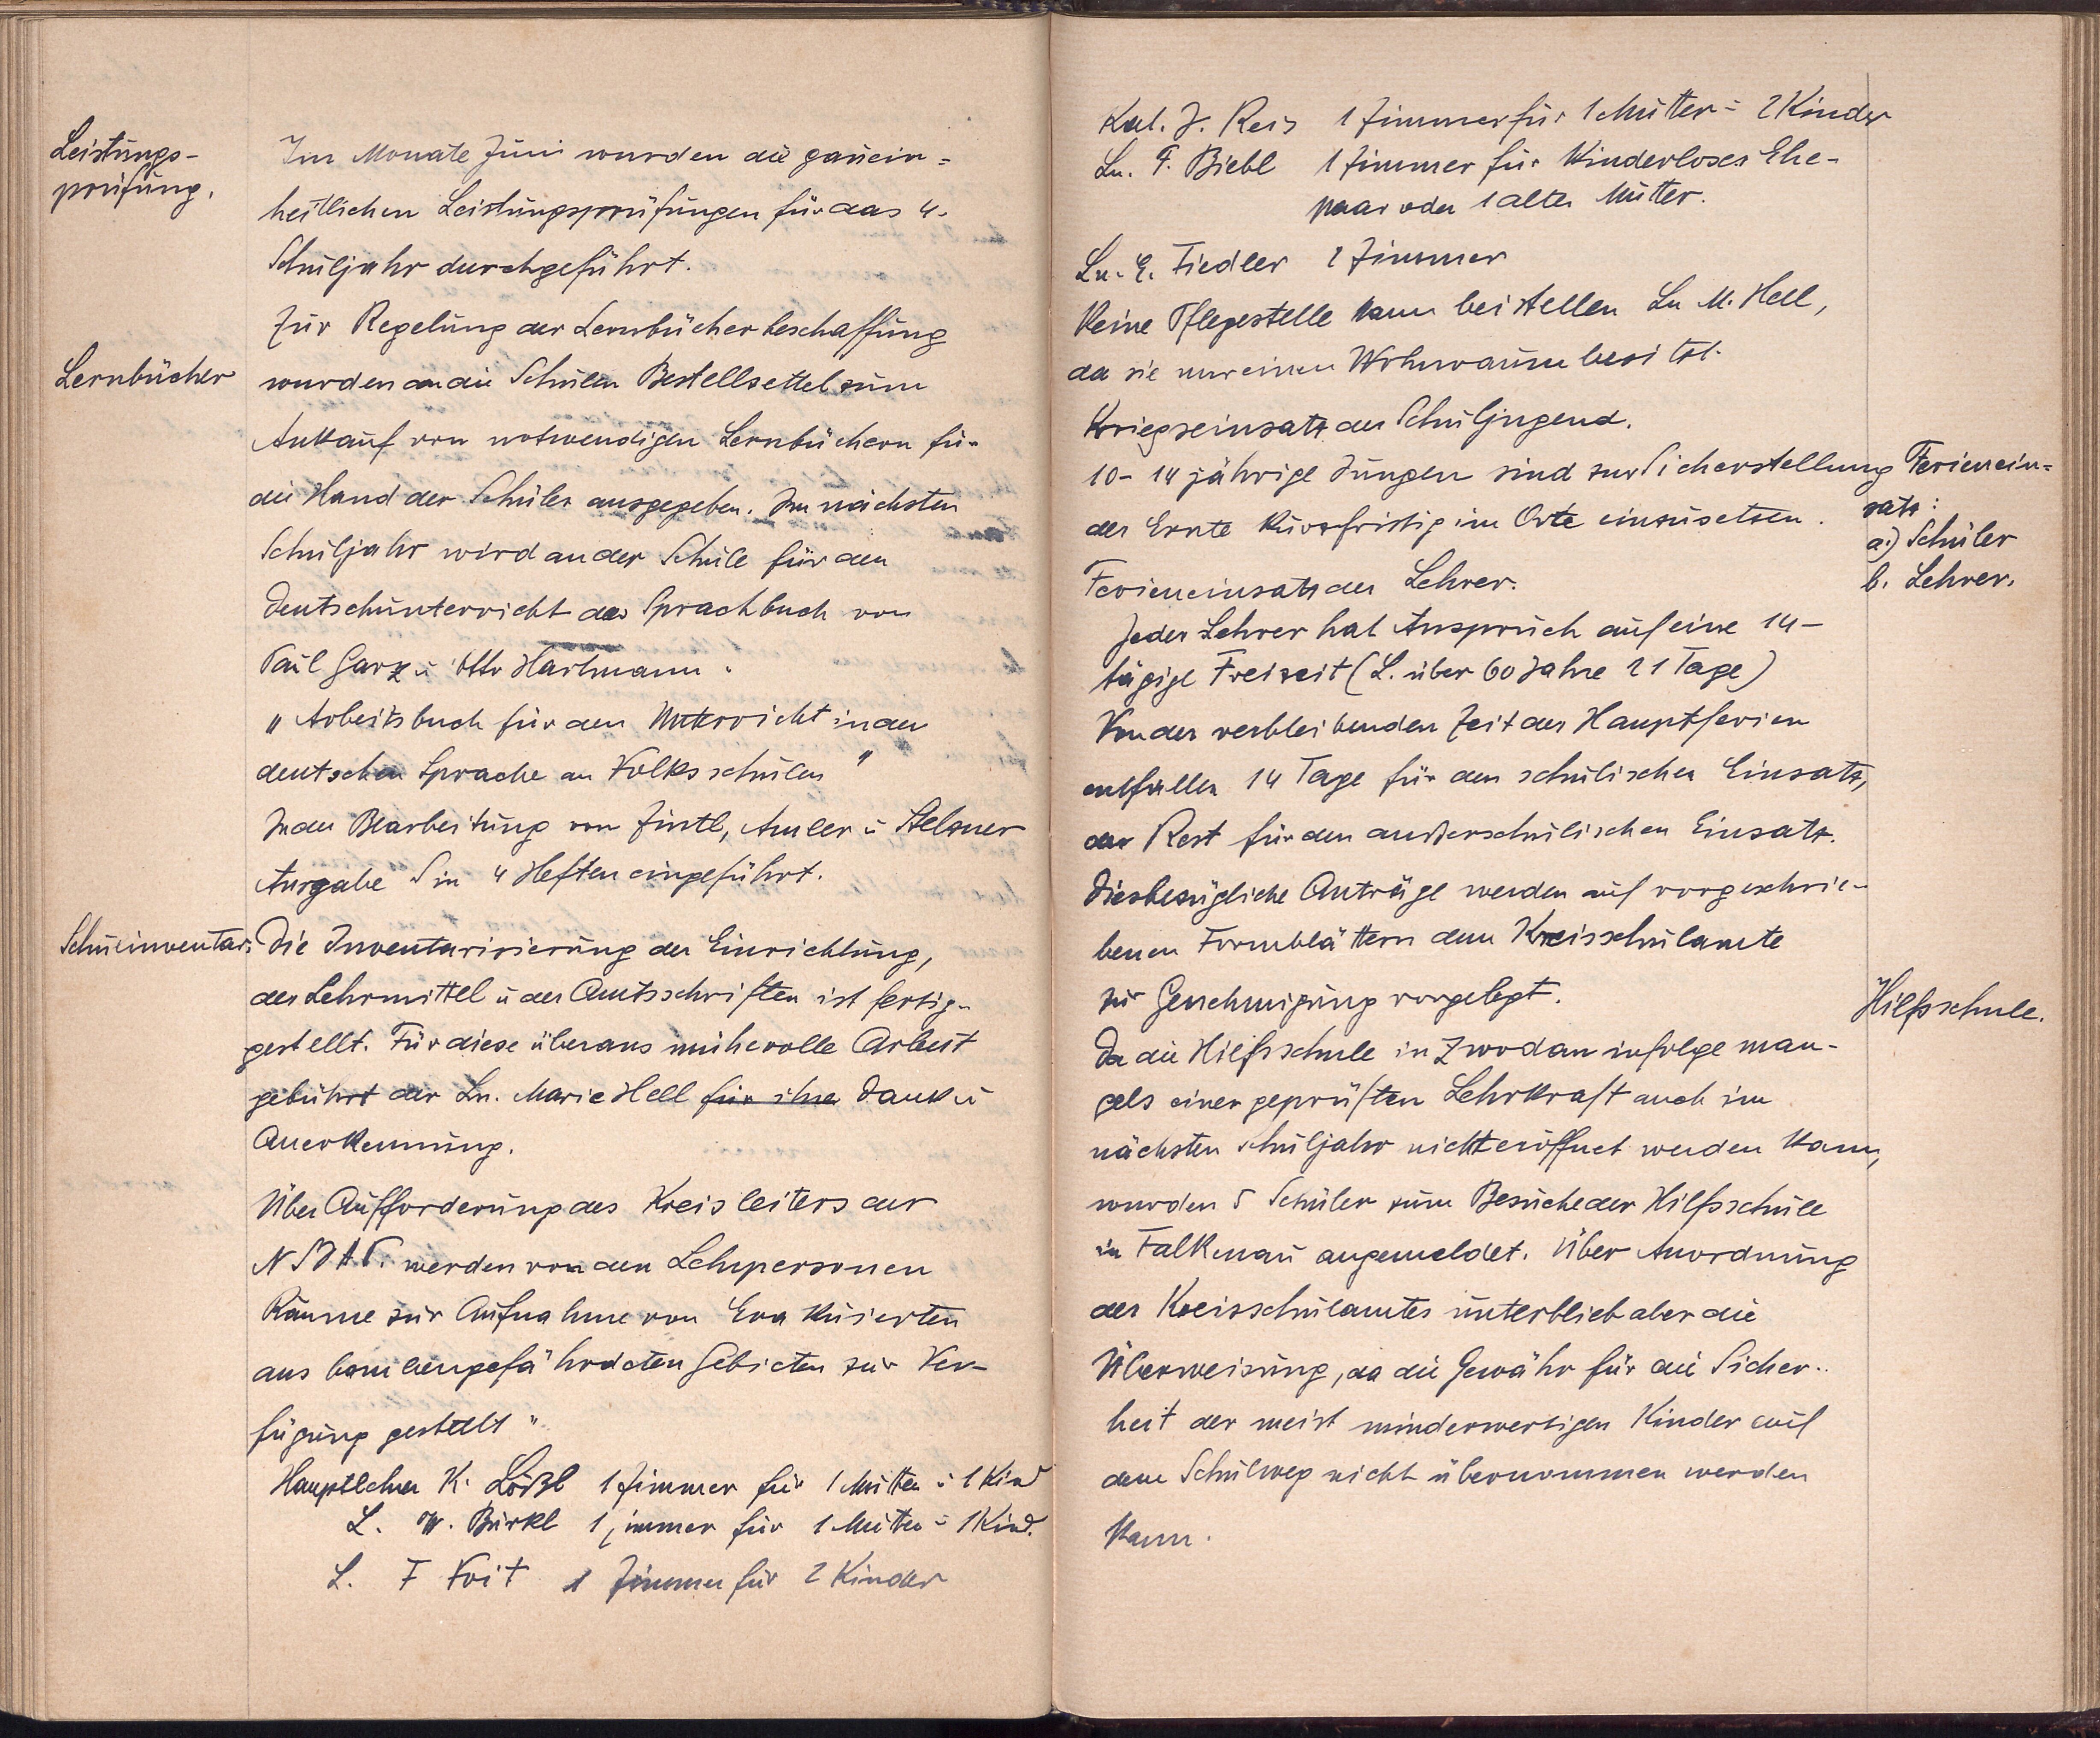 Leistungs-
prüfung.
Im Monate Juni wurden die gauein=
heitlichen Leistungsprüfungen für das 4.
Schuljahr durchgeführt.
Zur Regelung der Lernbücherbeschaffung
Lernbücher
wurden an die Schulen Bestellzettel zum
Ankauf von notwendigen Lernbüchern für
die Hand der Schüler ausgegeben. Im nächsten
Schuljahr wird an der Schule für den
Deutschunterricht das Sprachbuch von
Paul Garz u Otto Hartmann
„Arbeitsbuch für den Unterricht in der
deutschen Sprache an Volksschulen"
In der Bearbeitung von Zintl, Amler u Stelzner
Ausgabe S in 4 Heften eingeführt.
Schulinventar:
Die Inventarisierung der Einrichtung,
der Lehrmittel u der Amtsschriften ist fertig-
gestellt. Für diese überaus mühevolle Arbeit
gebührt der Ln. Marie Hell für ihre Dank u
Anerkennung.
Über Aufforderung des Kreisleiters der
NSDAP. werden von den Lehrpersonen
Räume zur Aufnahme von Evakuierten
aus bombengefährdeten Gebieten zur Ver-
fügung gestellt"
Hauptlehrer K. Lößl 1 Zimmer für 1 Mutter u 1 Kind
L. W. Bürkl 1 Zimmer für 1 Mutter u 1 Kind.
L. F Voit 1 Zimmer für 2 Kinder
Kat. J. Reis 1 Zimmer für 1 Mutter u 2 Kinder
Ln. F. Biebl 1 Zimmer für Kinderloses Ehe-
paar oder 1 alte Mutter.
Ln. E. Fiedler 1 Zimmer
Keine Pflegestelle kann beistellen Ln M. Hell,
da sie nur einen Wohnraum besitzt.
Kriegseinsatz der Schuljugend.
10-14 jährige Jungen sind zur Sicherstellung
der Ernte kurzfristig im Orte einzusetzen.
Ferienein=
satz:
a.) Schüler
b. Lehrer.
Ferieneinsatz der Lehrer.
Jeder Lehrer hat Anspruch auf eine 14-
tägige Freizeit (L. über 60 Jahre 21 Tage)
Von der verbleibenden Zeit der Hauptferien
entfallen 14 Tage für den schulischen Einsatz,
der Rest für den außerschulischen Einsatz.
Diesbezügliche Anträge werden auf vorgeschrie-
benen Formblättern dem Kreisschulamte
zur Genehmigung vorgelegt.
Hilfsschule.
Da die Hilfsschule in Zwodau infolge man-
gels einer geprüften Lehrkraft auch im
nächsten Schuljahr nicht eröffnet werden kann,
wurden 5 Schüler zum Besuche der Hilfsschule
in Falkenau angemeldet. Über Anordnung
des Kreisschulamtes unterblieb aber die
Überweisung, da die Gewähr für die Sicher-
heit der meist minderwertigen Kinder auf
dem Schulweg nicht übernommen werden
kann.